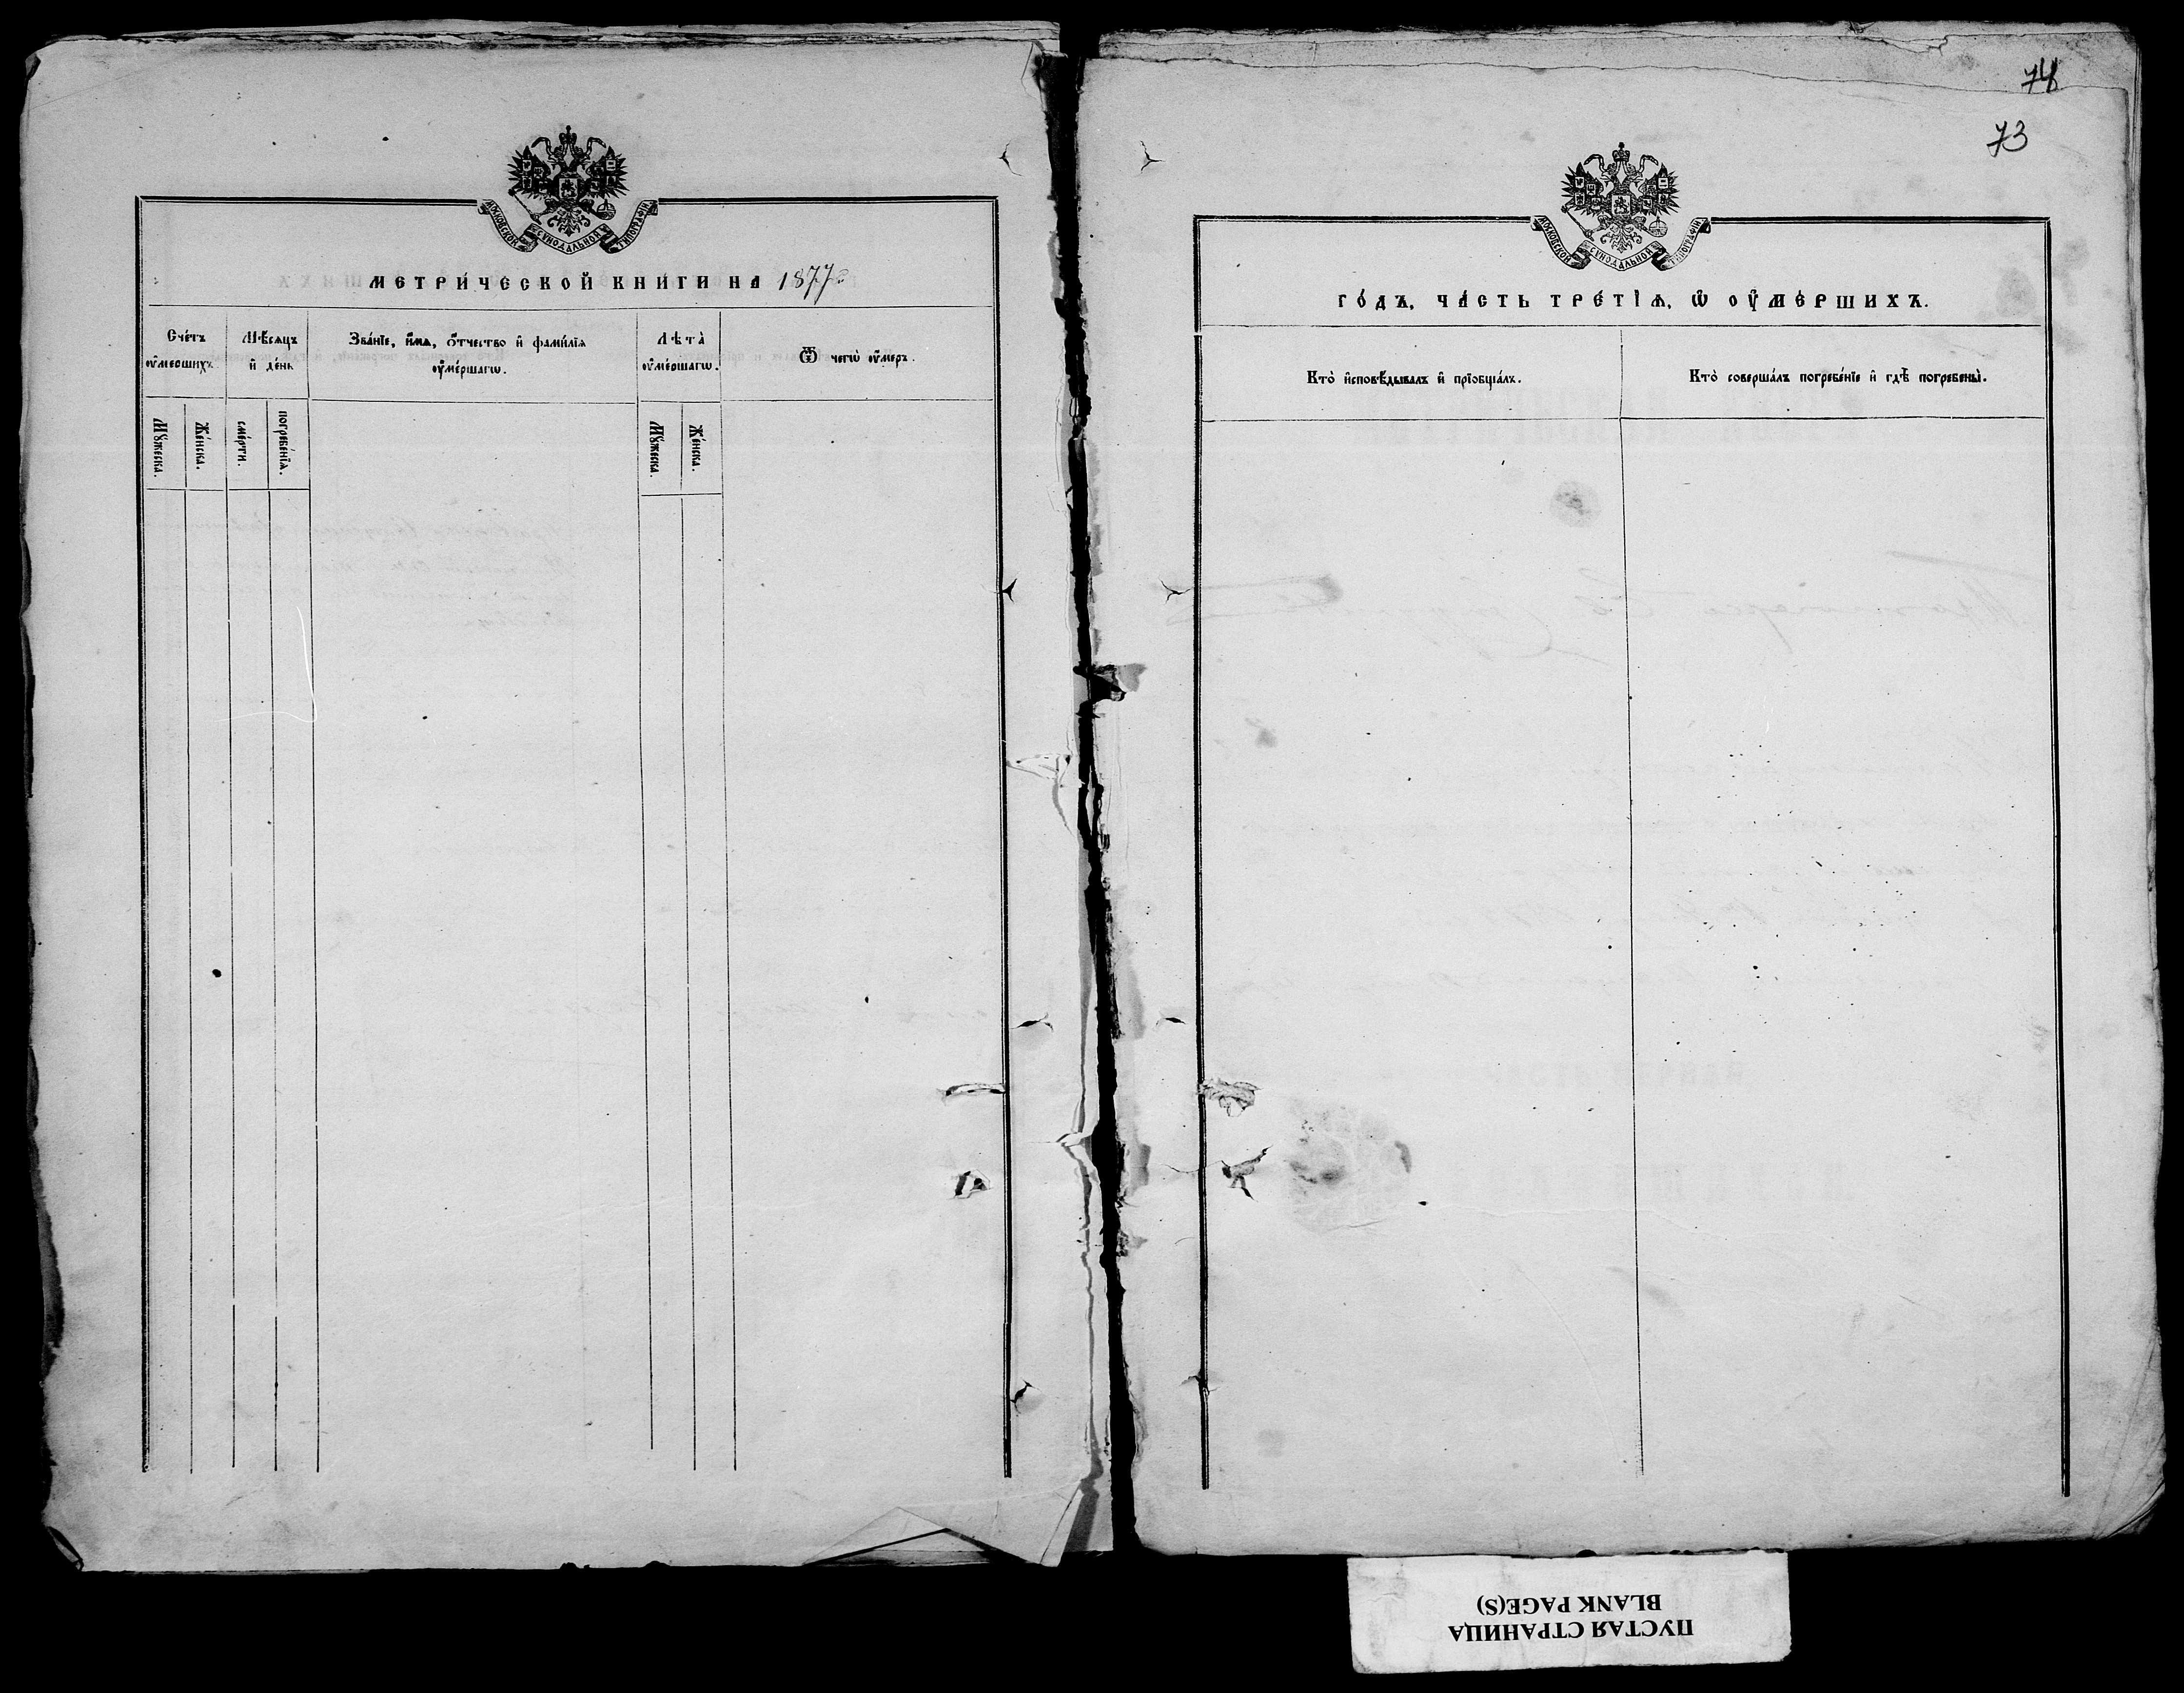 74
73
МОСКОВСКОЙ СѴНОДАЛЬНОЙ ТИПОГРАФІИ
МЕТРИ́ЧЕСКОЙ КНИ́ГИ НА 1877
Сче́тъ ᲂу҆ме́ршихъ.
Мѣ́сяцъ и҆ де́нь
Зва́нїе, и҆́мѧ, ѻ҆́тчество и҆ фами́лїѧ ᲂу҆ме́ршагѡ.
Лѣ́та ᲂу҆ме́ршагѡ.
Ѿ чегѡ̀ ᲂу҆́меръ.
Мꙋ́жеска.
Же́нска.
сме́рти.
погребе́нїѧ.
Мꙋ́жеска.
Же́нска.
МОСКОВСКОЙ СѴНОДАЛЬНОЙ ТИПОГРАФІИ
ГО́ДЪ, ЧА́СТЬ ТРЕ́ТЇѦ, Ѡ҆ ОУ҆МЕ́РШИХЪ.
Кто̀ и҆сповѣ́дывалъ и҆ прїѡбща́лъ.
Кто̀ соверша́лъ погребе́нїе и҆ гдѣ̀ погребены̀.
ПУСТАЯ СТРАНИЦА
BLANK PAGE(S)